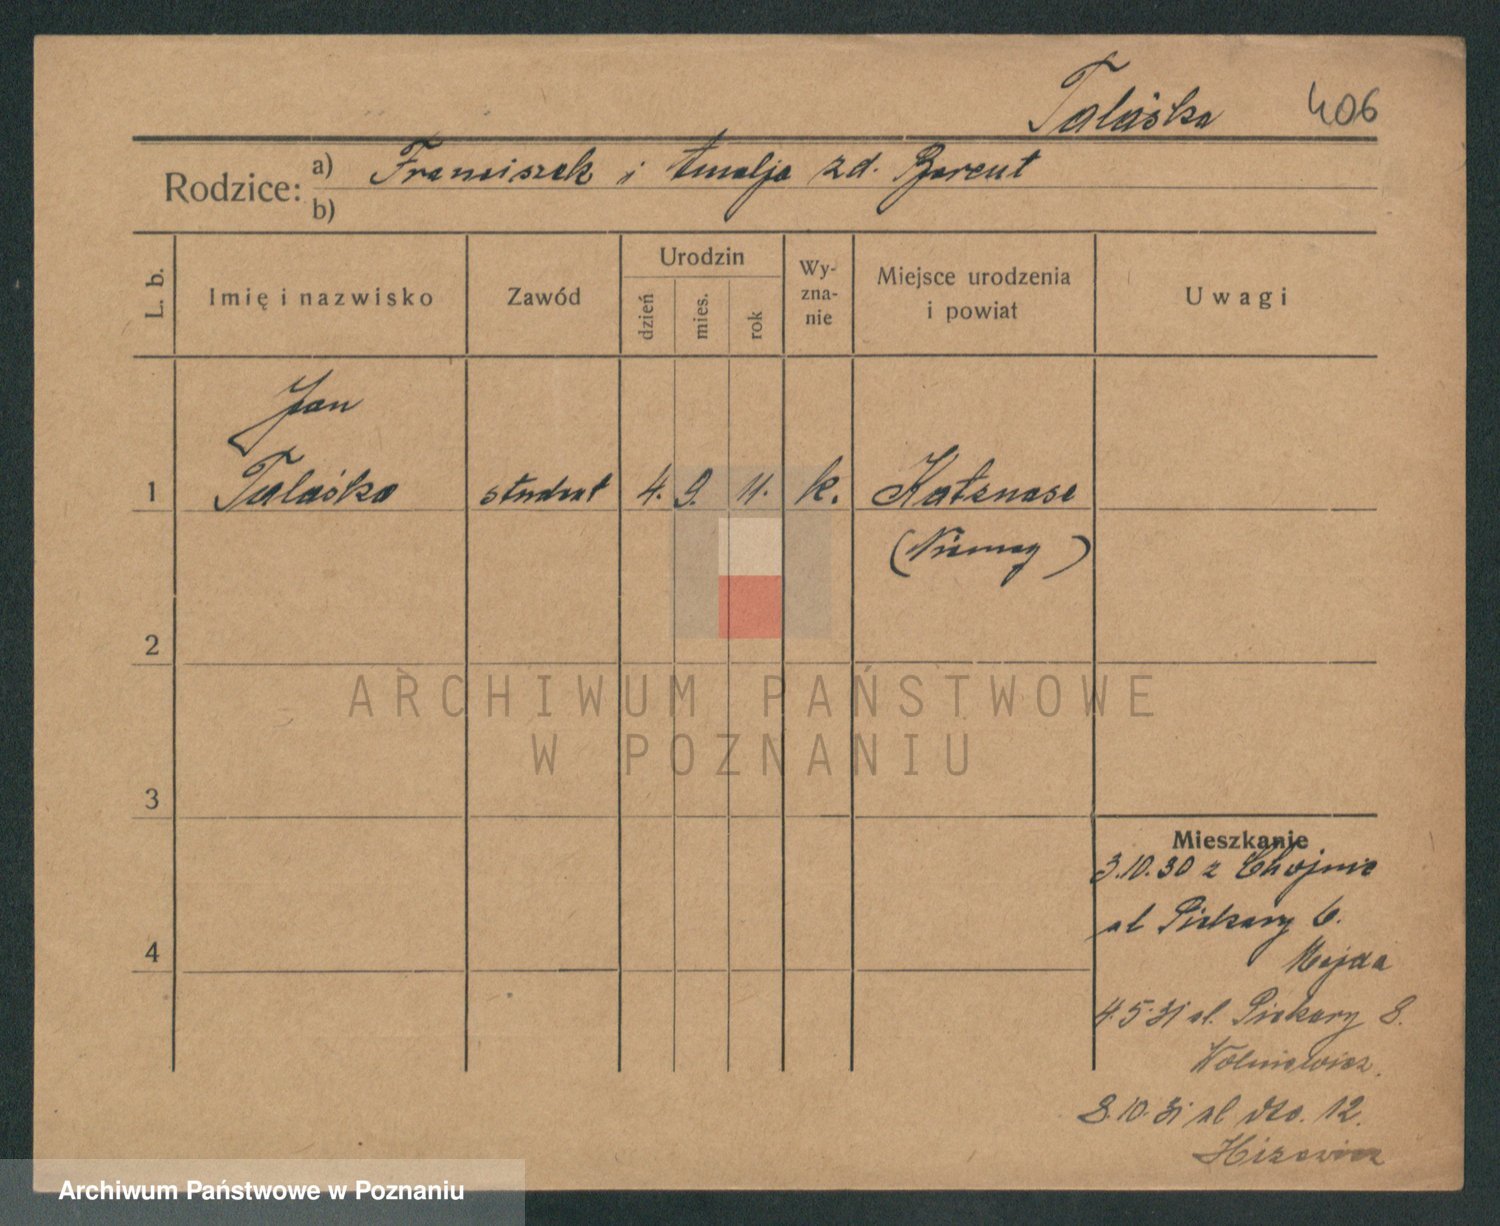 Talaśka 406
Rodzice: a) Franciszek i Amalja zd. Borcut
b)
L. b. Imię i nazwisko Zawód Urodzin dzień mies. rok Wy-zna-nie Miejsce urodzenia i powiat Uwagi
Jan
1 Talaśka student 4. 9. 11. k. Katznase
(Niemcy)
2
ARCHIWUM PAŃSTWOWE
W POZNANIU
3
Mieszkanie
3.10.30 z Chojnic
ul Piekary 6.
Mojda
4
4.5.31 ul. Piekary 8.
Wolniewicz.
8.10.31 ul dto. 12.
Archiwum Państwowe w Poznaniu